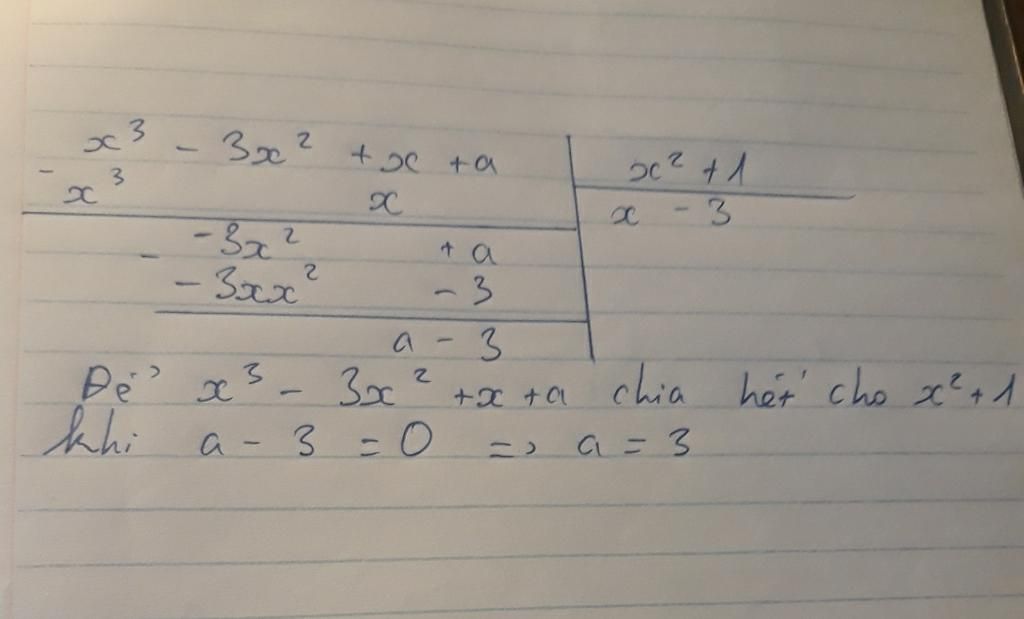 x³ - 3x² + x + a | x² + 1
- x³ x | x - 3
-3x² + a
- -3xx² - 3
a - 3
Để x³ - 3x² + x + a chia hết cho x² + 1
khi a - 3 = 0 => a = 3